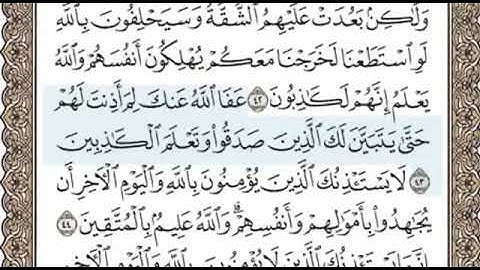 وَلَٰكِنۢ بَعُدَتْ عَلَيْهِمُ ٱلشُّقَّةُ وَسَيَحْلِفُونَ بِٱللَّهِ
لَوِ ٱسْتَطَعْنَا لَخَرَجْنَا مَعَكُمْ يُهْلِكُونَ أَنفُسَهُمْ وَٱللَّهُ
يَعْلَمُ إِنَّهُمْ لَكَٰذِبُونَ ٤٢ عَفَا ٱللَّهُ عَنكَ لِمَ أَذِنتَ لَهُمْ
حَتَّىٰ يَتَبَيَّنَ لَكَ ٱلَّذِينَ صَدَقُوا۟ وَتَعْلَمَ ٱلْكَٰذِبِينَ
٤٣ لَا يَسْتَـْٔذِنُكَ ٱلَّذِينَ يُؤْمِنُونَ بِٱللَّهِ وَٱلْيَوْمِ ٱلْـَٔاخِرِ أَن
يُجَٰهِدُوا۟ بِأَمْوَٰلِهِمْ وَأَنفُسِهِمْ ۗ وَٱللَّهُ عَلِيمٌۢ بِٱلْمُتَّقِينَ ٤٤
إِنَّمَا يَسْتَـْٔذِنُكَ ٱلَّذِينَ لَا يُؤْمِنُونَ بِٱللَّهِ وَٱلْيَوْمِ ٱلْـَٔاخِرِ